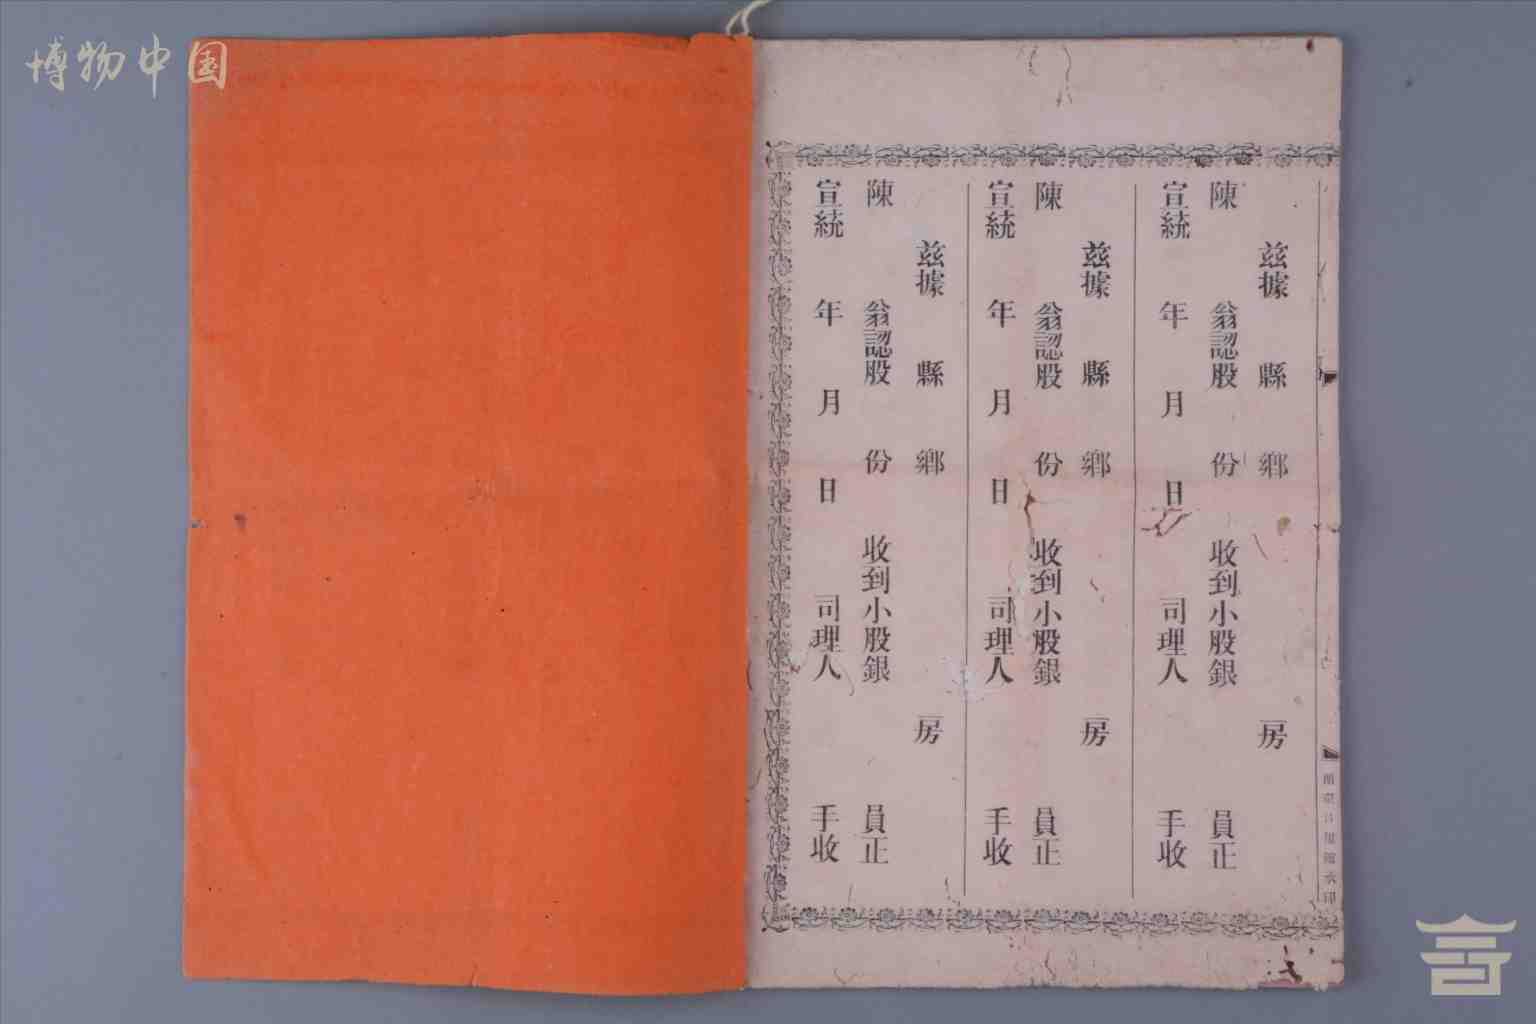 博物中国
兹據 縣 鄉 房
陳 翁認股 份 收到小股銀 員正
宣統 年 月 日 司理人 手收
兹據 縣 鄉 房
陳 翁認股 份 收到小股銀 員正
宣統 年 月 日 司理人 手收
兹據 縣 鄉 房
陳 翁認股 份 收到小股銀 員正
宣統 年 月 日 司理人 手收